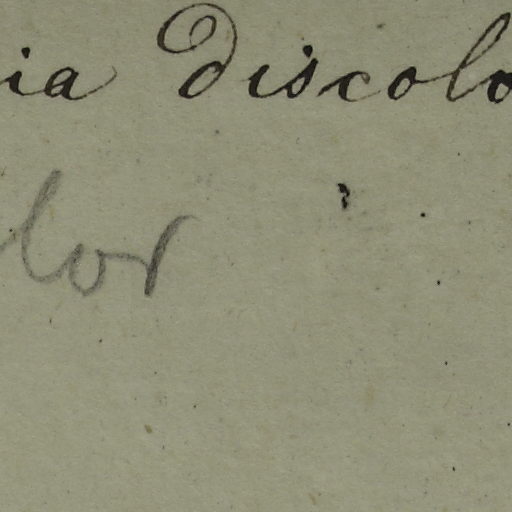 ia discolo
lor